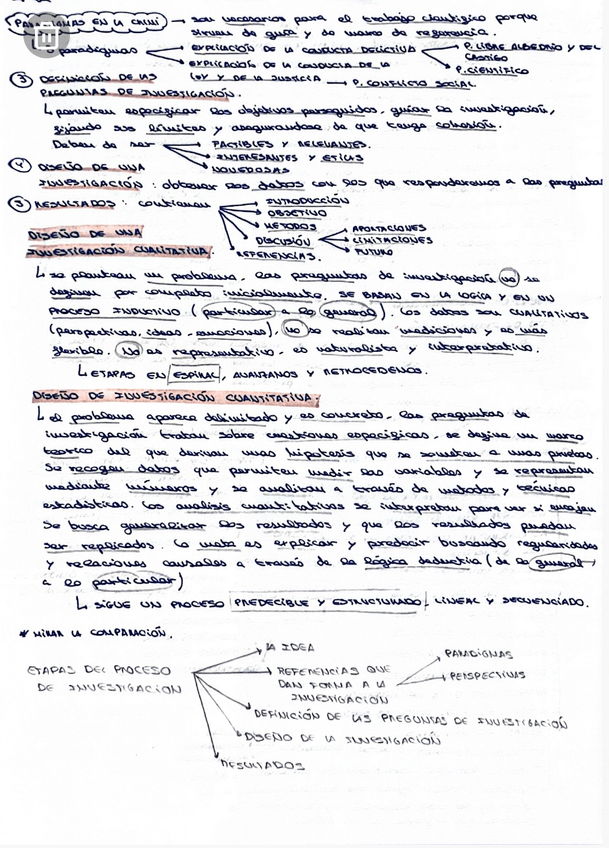 PARADIGMAS EN LA CRIMI → son necesarios para el trabajo científico porque
sirven de guía y de marco de referencia.
paradigmas → EXPLICACIÓN DE LA CONDUCTA DELICTIVA → P. LIBRE ALBEDRÍO Y DEL CASTIGO
→ P. CIENTÍFICO
→ EXPLICACIÓN DE LA CONDUCTA DE LA
LEY Y DE LA JUSTICIA → P. CONFLICTO SOCIAL
③ DEFINICIÓN DE LAS
PREGUNTAS DE INVESTIGACIÓN.
↳ permiten especificar los objetivos perseguidos, guiar la investigación,
fijando sus límites y asegurandose de que tenga cohesión.
Deben de ser → FACTIBLES Y RELEVANTES.
→ INTERESANTES Y ETICAS
→ NOVEDOSAS
④ DISEÑO DE UNA
INVESTIGACIÓN: obtener los datos con los que responderemos a las preguntas
⑤ RESULTADOS: contienen → INTRODUCCIÓN
→ OBJETIVO
→ METODOS
→ DISCUSIÓN → APORTACIONES
→ LIMITACIONES
→ FUTURO
→ REFERENCIAS.
DISEÑO DE UNA
INVESTIGACIÓN CUALITATIVA.
↳ se plantean un problema, las preguntas de investigación no se
definen por completo inicialmente. SE BASAN EN LA LOGICA Y EN UN
PROCESO INDUCTIVO (particular a lo general). Los datos son CUALITATIVOS
(perspectivas, ideas, emociones), no se realizan mediciones y es más
flexible. No es representativo, es naturalista y interpretativo.
↳ ETAPAS EN ESPIRAL, AVANZAMOS Y RETROCEDEMOS.
DISEÑO DE INVESTIGACIÓN CUANTITATIVA:
↳ el problema aparece delimitado y es concreto, las preguntas de
investigación tratan sobre cuestiones especificas, se define un marco
teorico del que derivan unas hipótesis que se someten a unas pruebas.
Se recogen datos que permiten medir las variables y se representan
mediante números y se analizan a través de metodos y técnicas
estadísticas. Los analisis cuantitativos se interpretan para ver si encajan
Se busca generalizar los resultados y que los resultados puedan
ser replicados. La meta es explicar y predecir buscando regularidades
y relaciones causales a través de la lógica deductiva (de lo general →
a lo particular)
↳ SIGUE UN PROCESO PREDECIBLE Y ESTRUCTURADO, LINEAL Y SECUENCIADO.
* MIRAR LA COMPARACIÓN.
ETAPAS DEL PROCESO
DE INVESTIGACIÓN
→ LA IDEA
→ REFERENCIAS QUE
DAN FORMA A LA
INVESTIGACIÓN
→ PARADIGMAS
→ PERSPECTIVAS
→ DEFINICIÓN DE LAS PREGUNTAS DE INVESTIGACIÓN
→ DISEÑO DE LA INVESTIGACIÓN
→ RESULTADOS